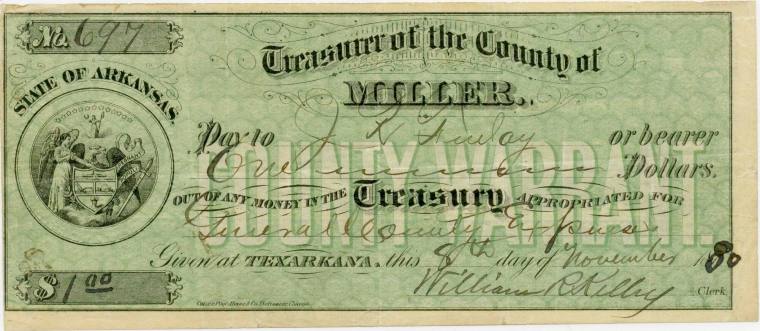 No. 697
Treasurer of the County of
MILLER.
STATE OF ARKANSAS.
Pay to J R Finlay or bearer
One Dollars.
COUNTY WARRANT.
OUT OF ANY MONEY IN THE Treasury APPROPRIATED FOR
General County Expenses
Given at TEXARKANA, this 8th day of November 1880
$1.00
William R Kelley Clerk.